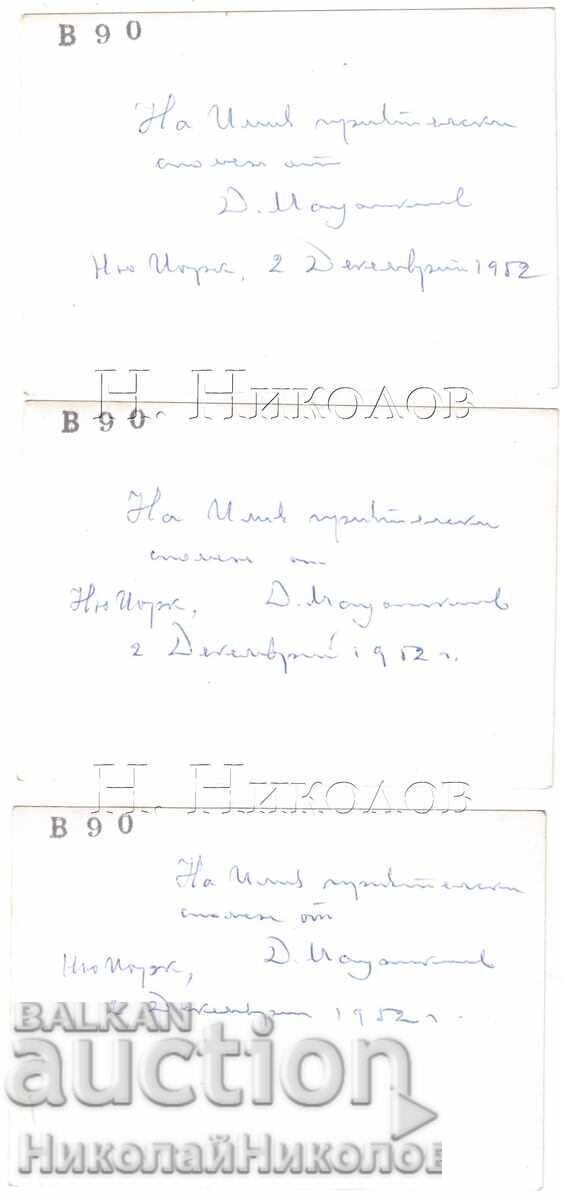 В 90
На Илия приятелски
спомен от
Д.
Ню Йорк, 2 Декемврий 1952
Н. Николов
В 90
На Илия приятелски
спомен от
Ню Йорк, Д.
2 Декемврий 1952 г.
Н. Николов
В 90
На Илия приятелски
спомен от
Д.
Ню Йорк,
2 Декемврий 1952 г.
BALKAN
auction
НиколайНиколов